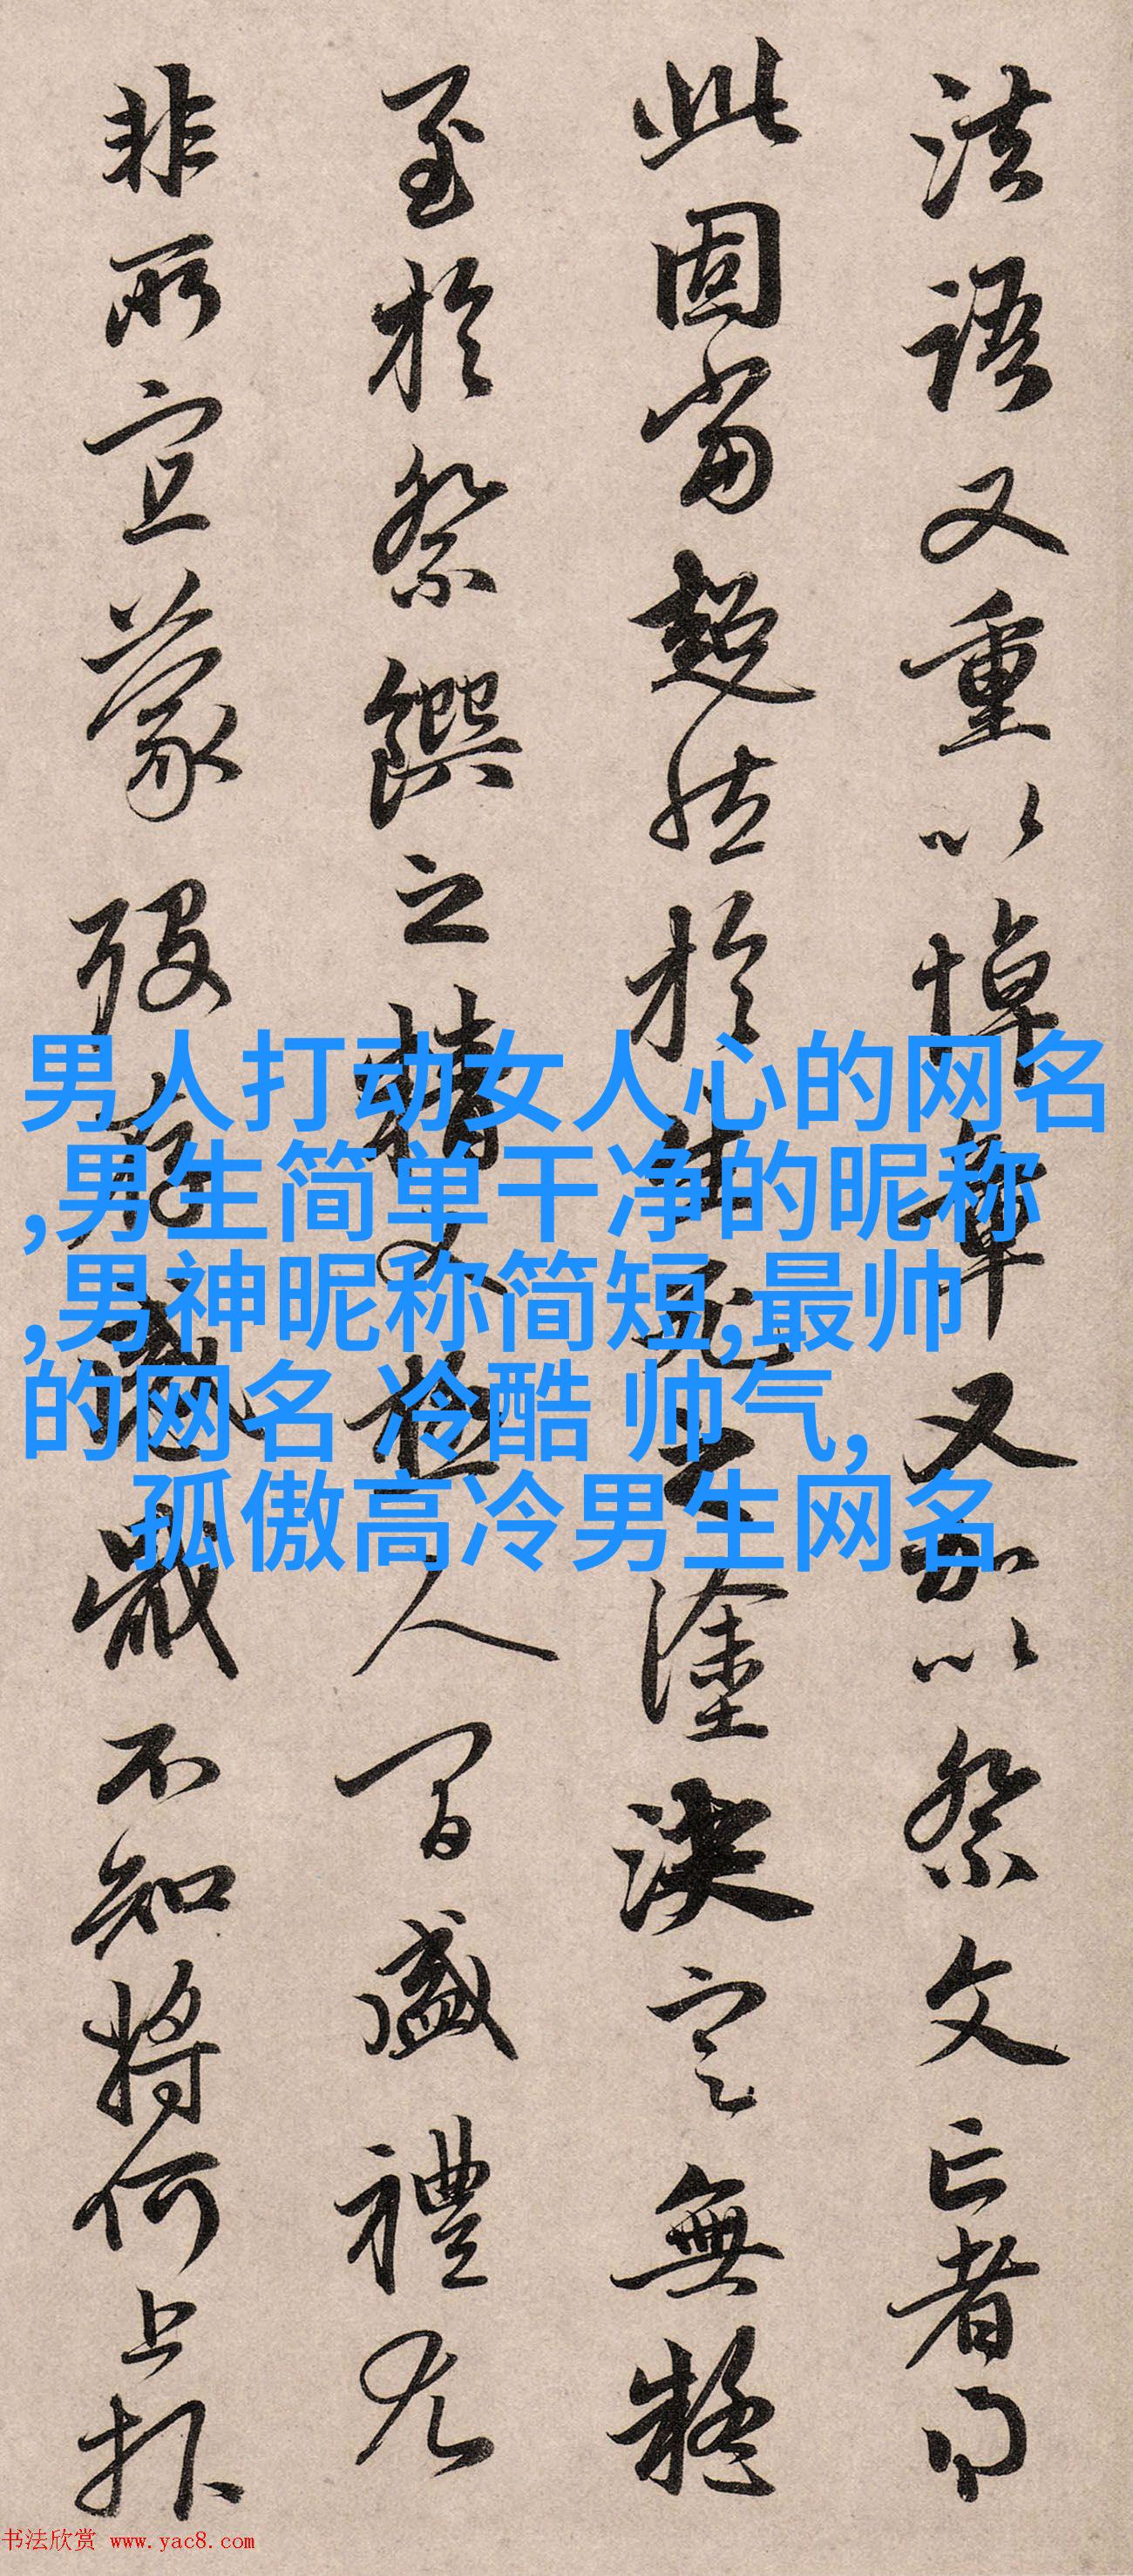 法語又重以悼章又加以祭文亡者得
此固當超然於生死之塗決定無疑
至於祭饌之精又極人間盛禮尤
非所宜蒙歿存感戢不知將何上報
男人打动女人心的网名
,男生简单干净的昵称
,男神昵称简短,最帅
的网名 冷酷 帅气,
孤傲高冷男生网名
书法欣赏 www.yac8.com